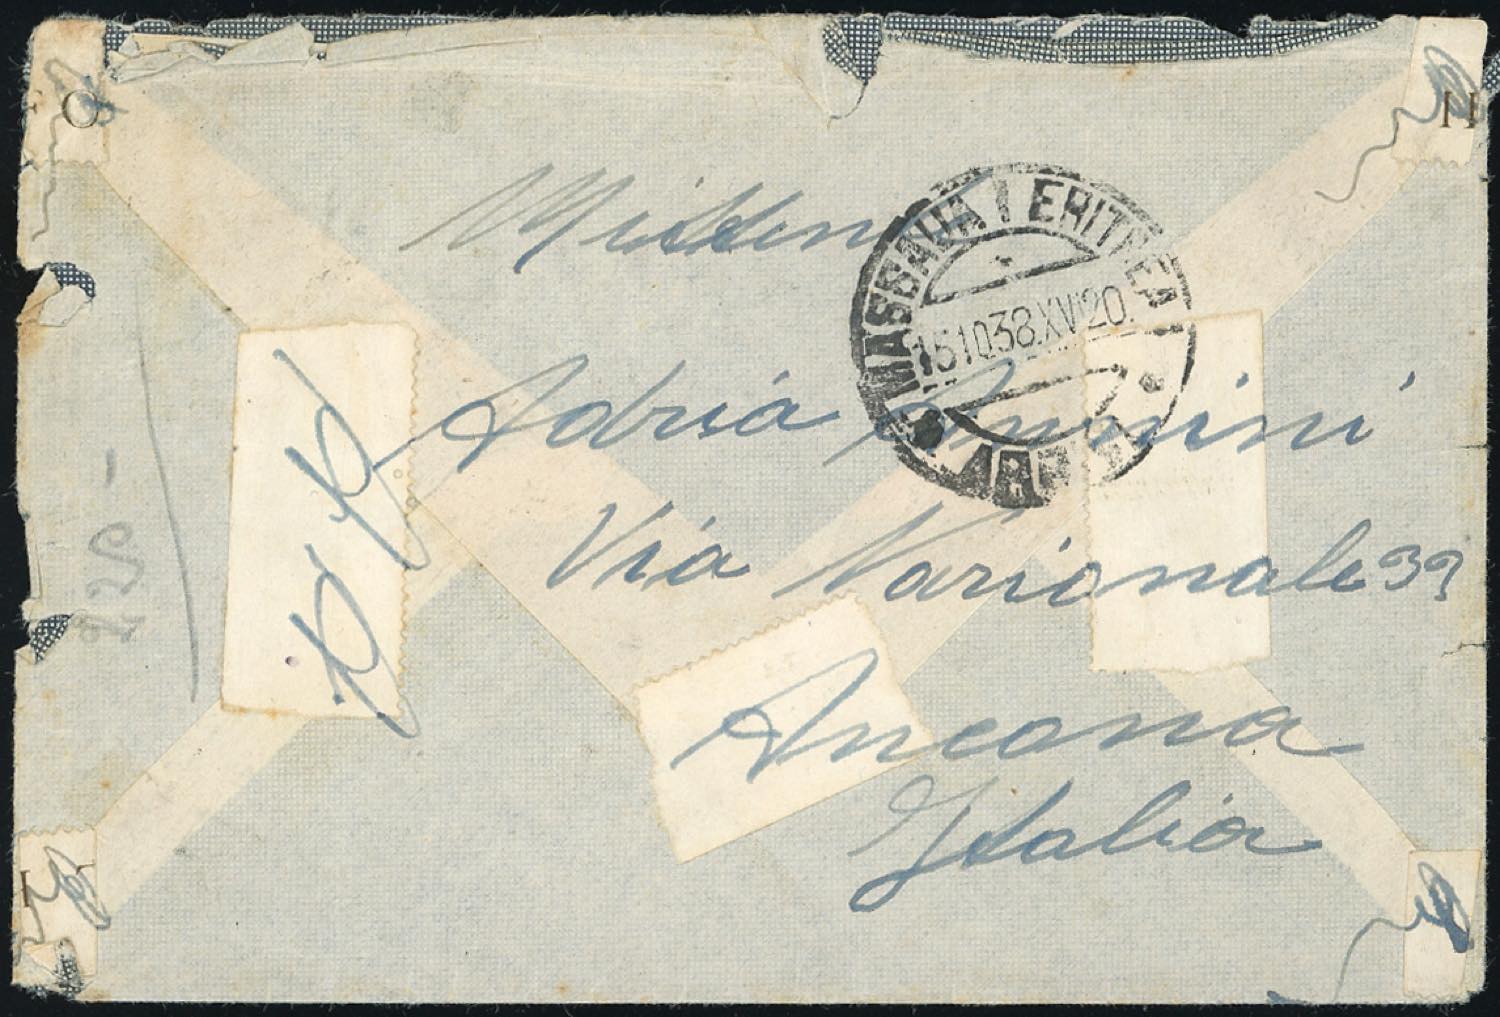 O
H
Mittente
MASSAUA ERITREA
15.10.38.XVI 20.
Adria
Via Nazionale 39
Ancona
Italia
220-